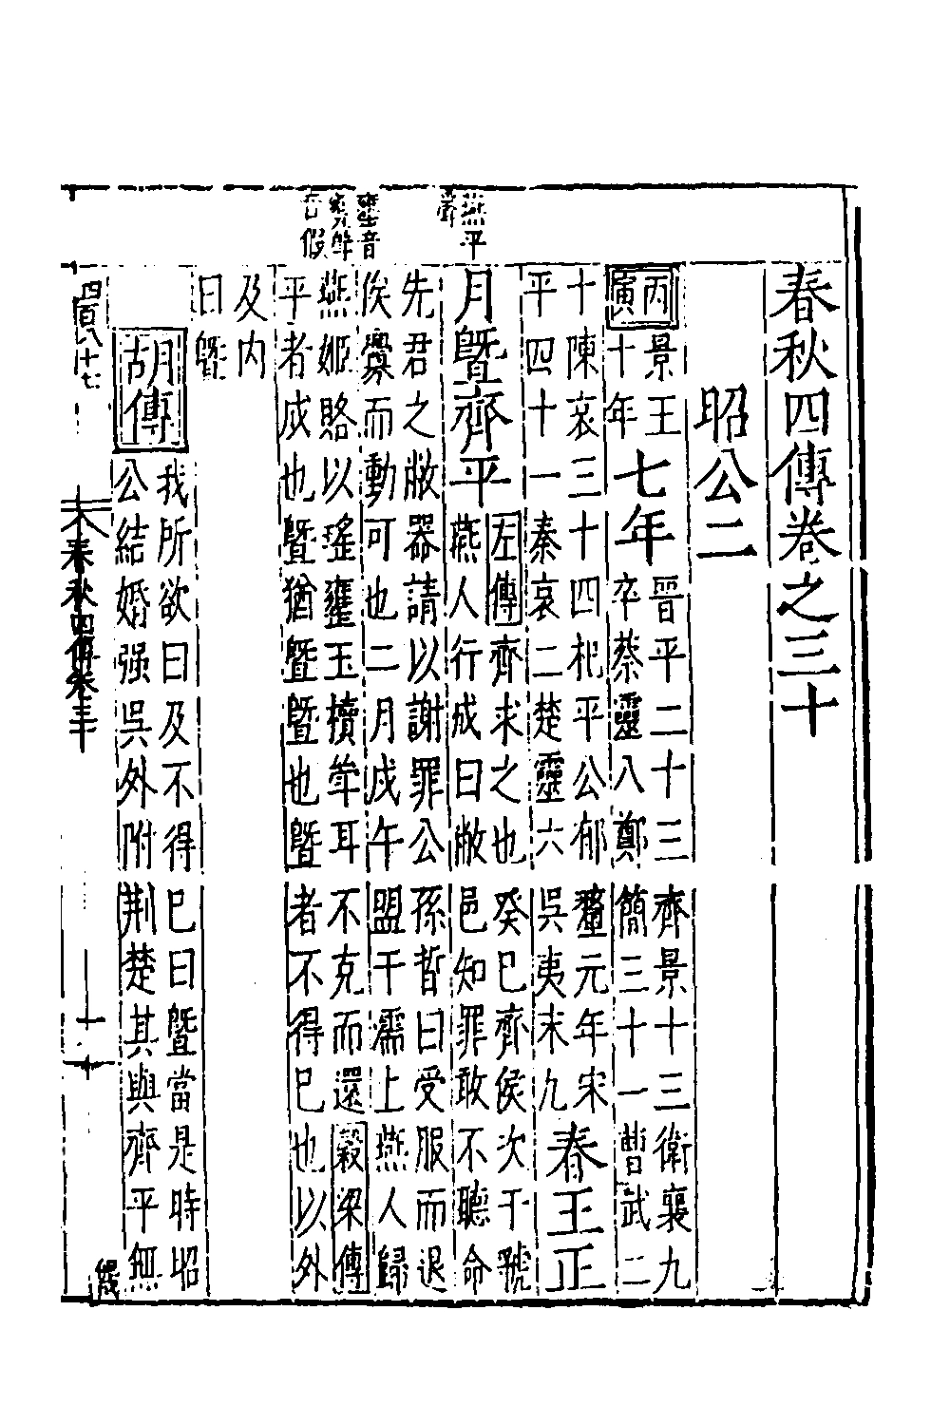 春秋四傳卷之三十
昭公二
丙寅
景王十年
七年
晉平二十三齊景十三衛襄九
卒蔡靈八鄭簡三十一曹武二
十陳哀三十四杞平公郁釐元年宋
平四十一秦哀二楚靈六吳夷末九
春王正
月暨齊平
左傳齊求之也癸巳齊侯次于虢
燕人行成曰敝邑知罪敢不聽命
先君之敝器請以謝罪公孫晳曰受服而退
俟釁而動可也二月戊午盟于濡上燕人歸
燕姬賂以瑤罋玉櫝斝耳不克而還穀梁傳
平者成也暨猶暨暨也暨者不得已也以外
及內
曰暨
胡傳
我所欲曰及不得已曰暨當是時昭
公結婚强吳外附荆楚其與齊平無
燕平
罋音
斝
音假
四百八十七
春秋四傳卷三十
一